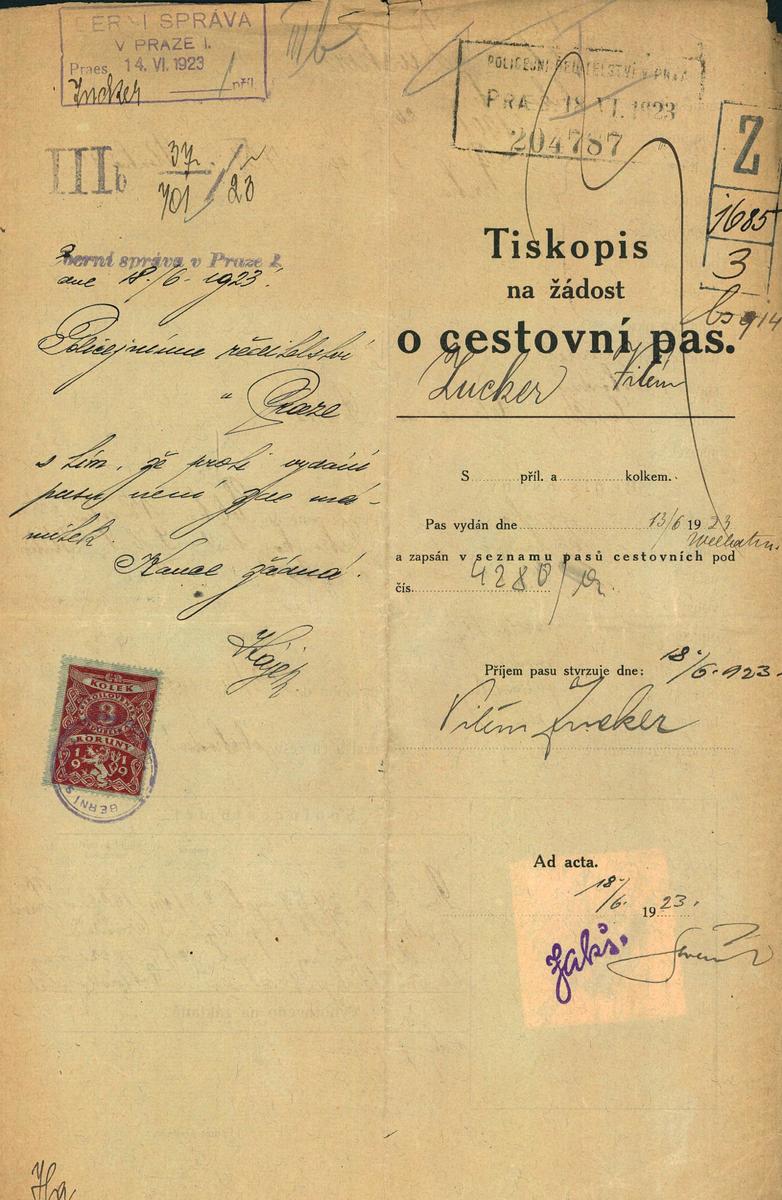 BERNÍ SPRÁVA
V PRAZE I.
Praes. 14. VI. 1923
Zucker / příl.
IIIb 37 / 701 / 23
Berní správa v Praze I.
dne 18./6. 1923.
Policejnímu ředitelství
v Praze
s tím, že proti vydání
pasu není zde ná-
mitek.
Kauce žádná.
Hájek
KOLEK
3
KORUNY
1919
BERNÍ S
IIIb
POLICEJNÍ ŘEDITELSTVÍ V PRAZE
PRAES. 18. VI. 1923
204787
Z
1685
3
Tiskopis
na žádost
o cestovní pas.
Zucker Vilém
S příl. a kolkem.
Pas vydán dne 13/6 1923
a zapsán v seznamu pasů cestovních pod
čís. 4280/
Příjem pasu stvrzuje dne: 18./6. 923.
Vilém Zucker
Ad acta.
18./6. 1923.
Jakš.